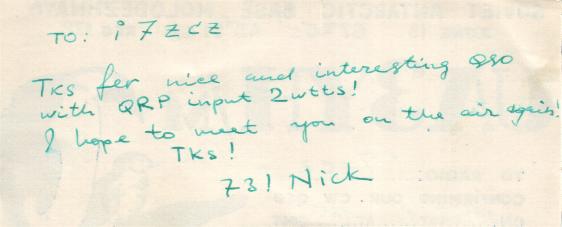 TO: i7zcz
TKS fer nice and interesting QSO
with QRP input 2wtts!
I hope to meet you on the air again!
TKS!
73! Nick